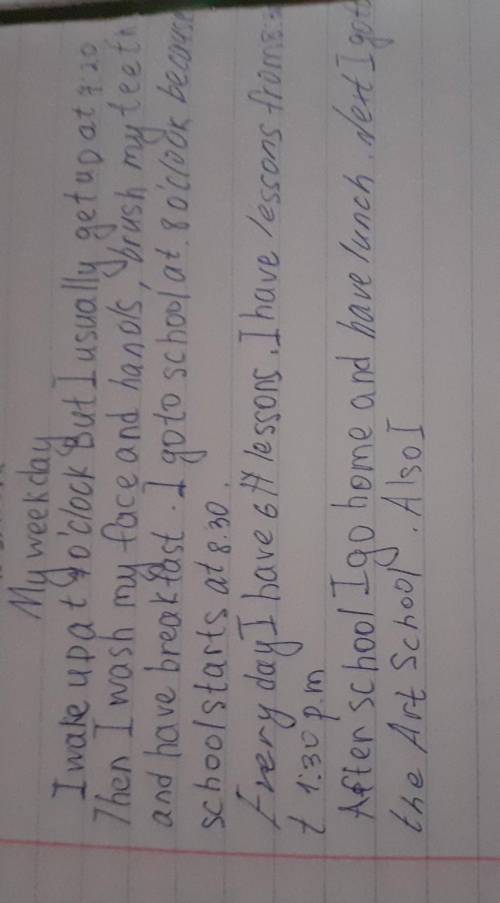 My weekday
I wake up at 7 o'clock But I usually get up at 7:20
Then I wash my face and hands, brush my teeth
and have breakfast. I go to school at 8 o'clock because
school starts at 8.30.
Every day I have 6/7 lessons. I have lessons from 8:3
t 1:30 p.m
After school I go home and have lunch. Next I go to
the Art School. Also I